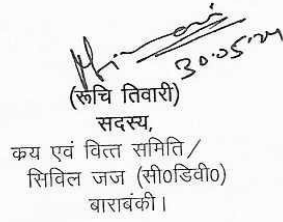 30.05.24
(रूचि तिवारी)
सदस्य,
कय एवं वित्त समिति/
सिविल जज (सी0डिवी0)
बाराबंकी।